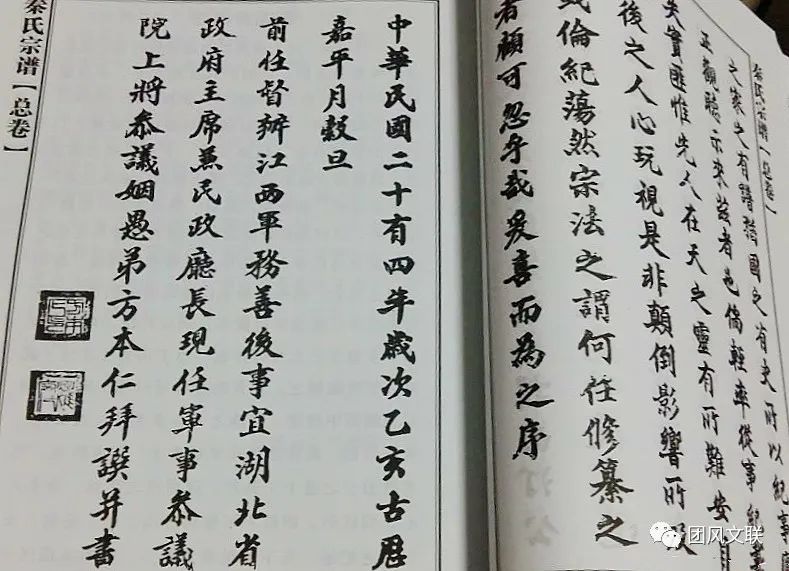 秦氏宗谱【总卷】
之家之有譜猶國之有史所以紀事
正觀聽示來茲者也倘輕率從事紀
失實匪惟先人在天之靈有所難安且
後之人心玩視是非顛倒影響所及
或倫紀蕩然宗法之謂何任修纂之
者顧可忽乎哉爰喜而為之序
中華民國二十有四年歲次乙亥古曆
嘉平月穀旦
前任督辦江西軍務善後事宜湖北省
政府主席兼民政廳長現任軍事叅議
院上將叅議姻愚弟方本仁拜譔并書
秦氏宗谱【总卷】
团风文联